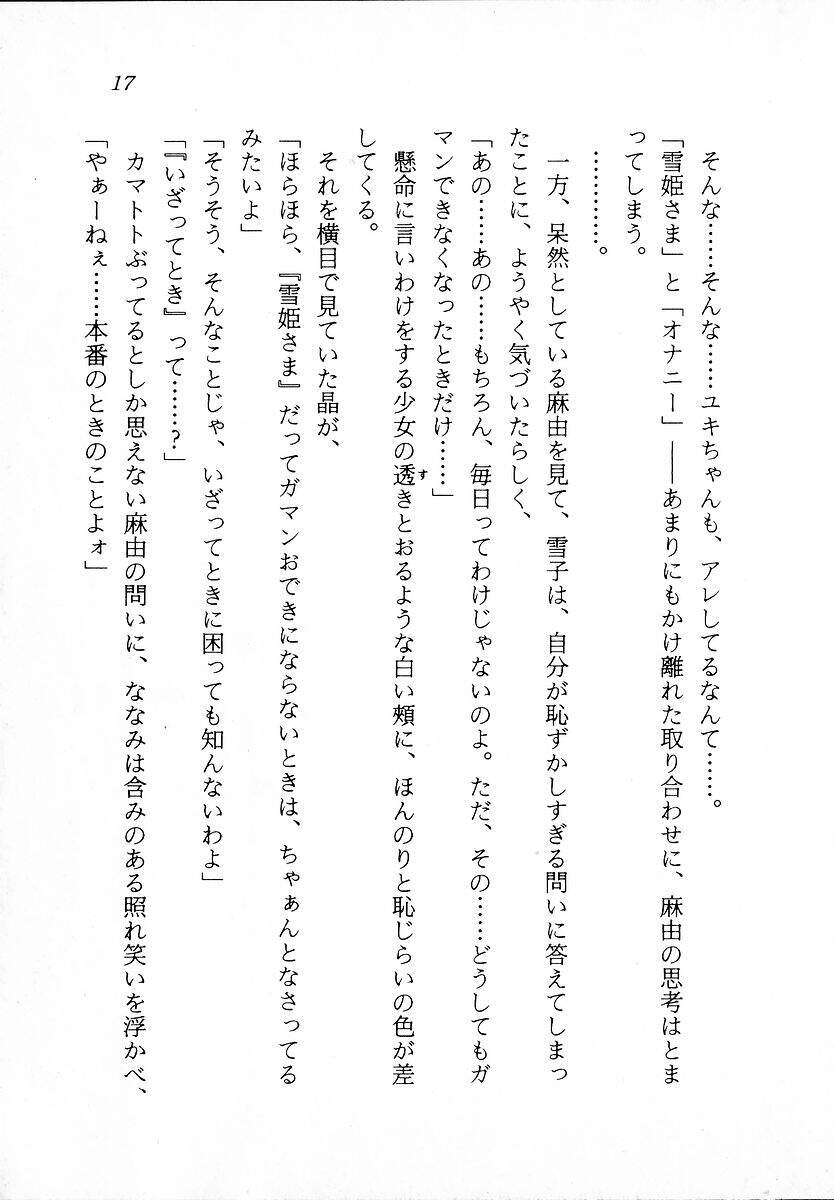 17
そんな……そんな……ユキちゃんも、アレしてるなんて……。
「雪姫さま」と「オナニー」――あまりにもかけ離れた取り合わせに、麻由の思考はとま
ってしまう。
…………。
一方、呆然としている麻由を見て、雪子は、自分が恥ずかしすぎる問いに答えてしまっ
たことに、ようやく気づいたらしく、
「あの……あの……もちろん、毎日ってわけじゃないのよ。ただ、その……どうしてもガ
マンできなくなったときだけ……」
懸命に言いわけをする少女の透きとおるような白い頰に、ほんのりと恥じらいの色が差
す
してくる。
それを横目で見ていた晶が、
「ほらほら、『雪姫さま』だってガマンおできにならないときは、ちゃぁんとなさってる
みたいよ」
「そうそう、そんなことじゃ、いざってときに困っても知んないわよ」
「『いざってとき』って……？」
カマトトぶってるとしか思えない麻由の問いに、ななみは含みのある照れ笑いを浮かべ、
「やぁーねぇ……本番のときのことよォ」